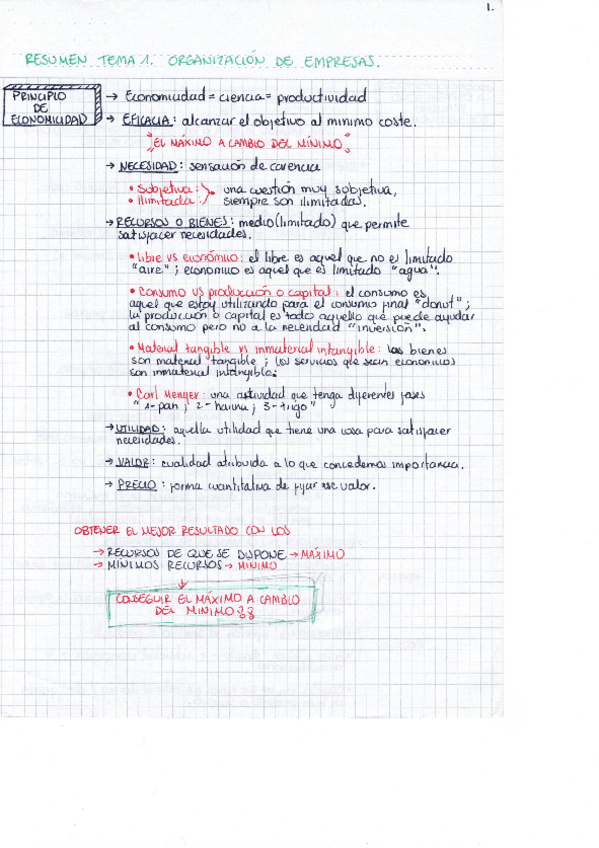 1.
RESUMEN TEMA 1. ORGANIZACIÓN DE EMPRESAS.
PRINCIPIO
DE
ECONOMICIDAD
→ Economicidad = ciencia = productividad
→ EFICACIA: alcanzar el objetivo al minimo coste.
"EL MÁXIMO A CAMBIO DEL MÍNIMO"
→ NECESIDAD: sensación de carencia
• Subjetiva:
• Ilimitada:
una cuestión muy subjetiva,
siempre son ilimitadas.
→ RECURSOS O BIENES: medio (limitado) que permite
satisfacer necesidades.
• Libre vs económico: el libre es aquel que no es limitado
"aire"; economico es aquel que es limitado "agua".
• Consumo vs producción o capital: el consumo es
aquel que estoy utilizando para el consumo final "donut";
la producción o capital es todo aquello que puede ayudar
al consumo pero no a la necesidad "inversión".
• Material tangible vs inmaterial intangible: los bienes
son material tangible; los servicios que sean economicos
son inmaterial intangible.
• Carl Menger: una actividad que tenga diferentes fases
"1-pan; 2-harina; 3-trigo"
→ UTILIDAD: aquella utilidad que tiene una cosa para satisfacer
necesidades.
→ VALOR: cualidad atribuida a lo que concedemos importancia.
→ PRECIO: forma cuantitativa de fijar ese valor.
OBTENER EL MEJOR RESULTADO CON LOS
→ RECURSOS DE QUE SE DISPONE → MÁXIMO
→ MÍNIMOS RECURSOS → MINIMO
CONSEGUIR EL MÁXIMO A CAMBIO
DEL MINIMO